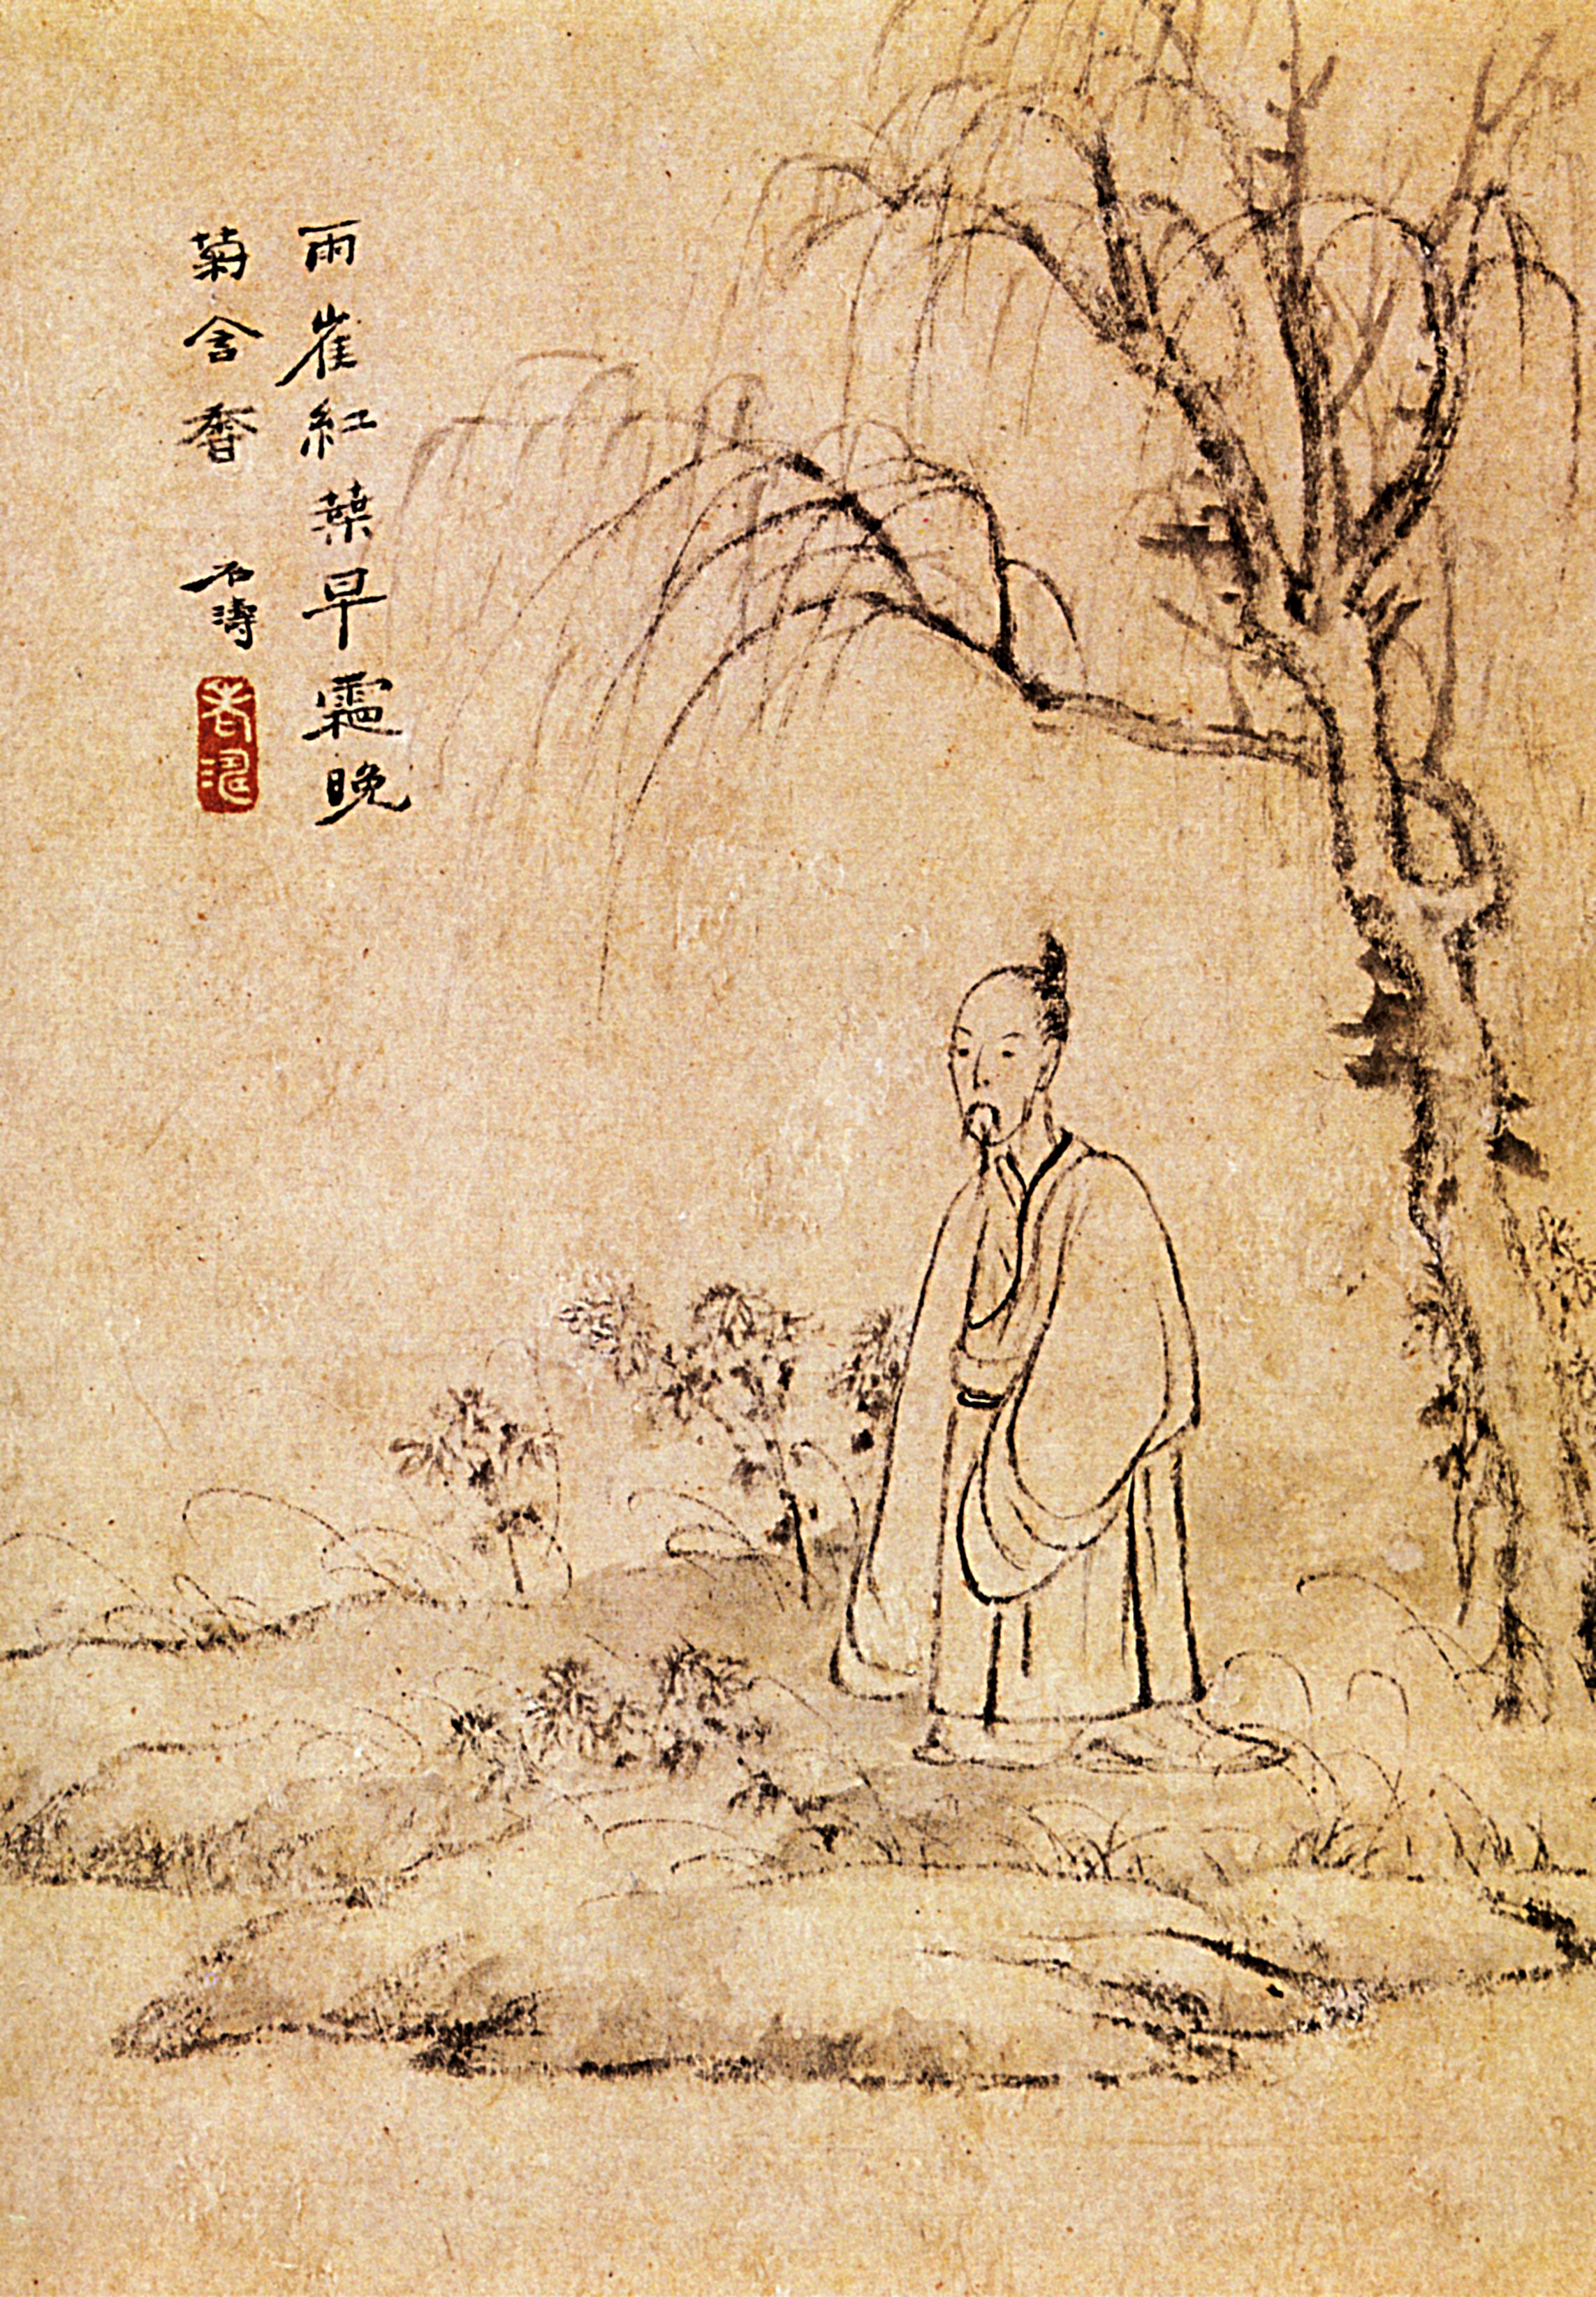 雨崔紅葉早霜晚
菊含香
石濤
老濤